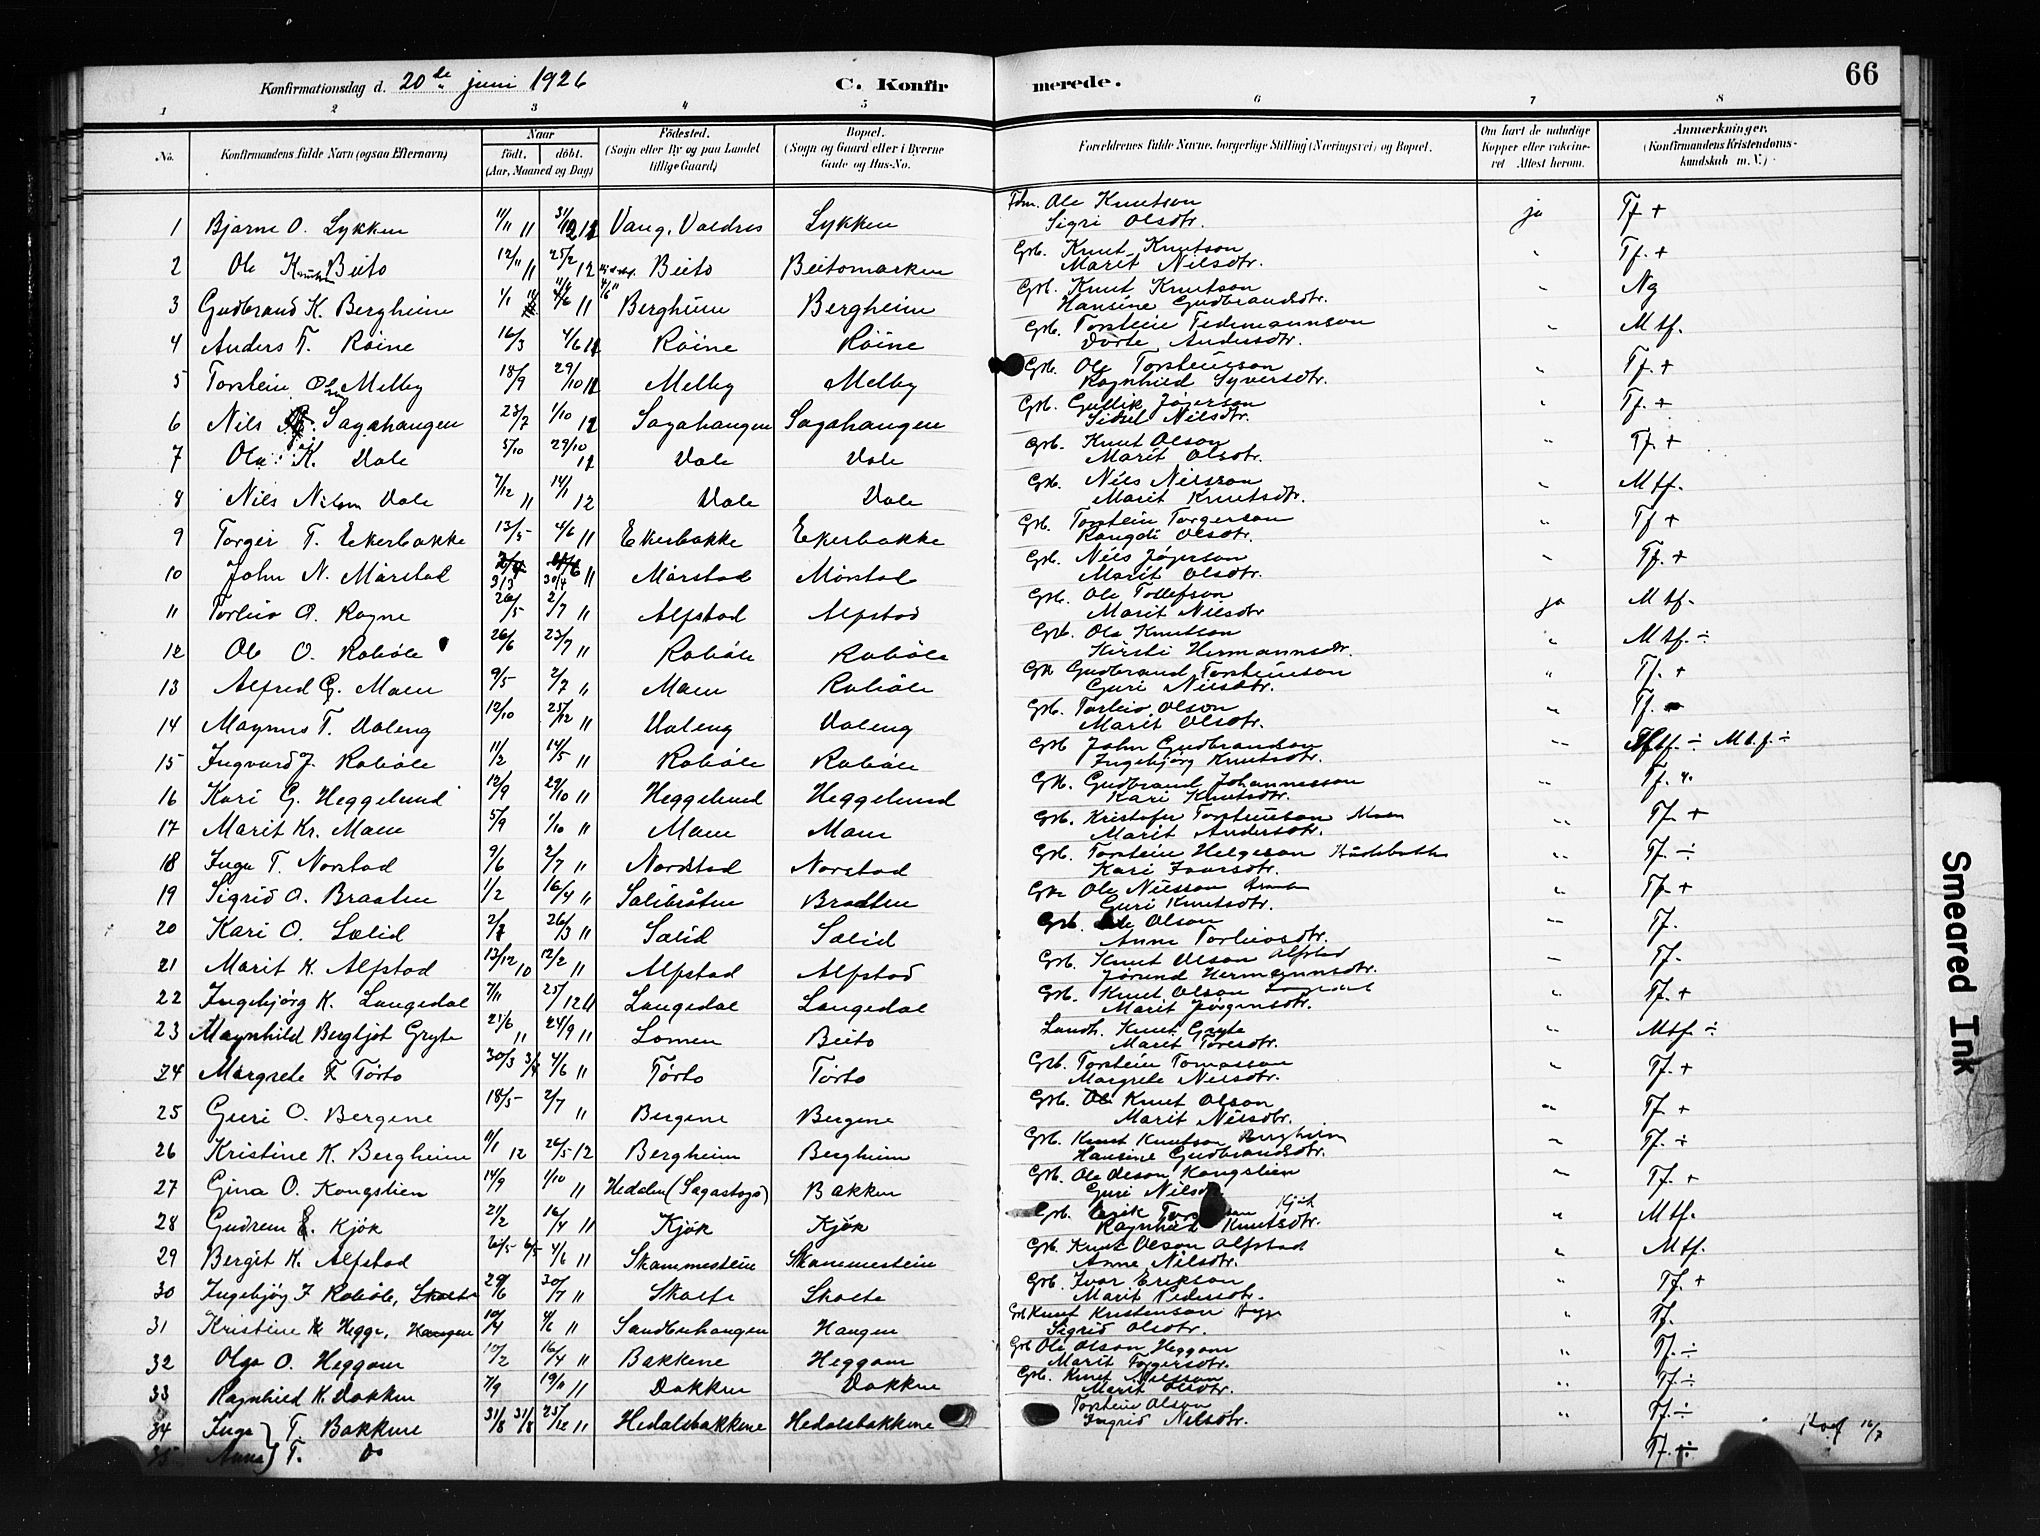 Konfirmationsdag d. 20de juni 1926
C. Konfirmerede.
66
1 2 3 4 5 6 7 8
No. Konfirmandens fulde Navn (ogsaa Efternavn) Naar født. døbt. (Aar, Maaned og Dag) Fødested. (Sogn eller By og paa Landet tillige Gaard) Bopæl. (Sogn og Gaard eller i Byerne Gade og Hus-No. Forældrenes fulde Navne, borgerlige Stilling (Næringsvei) og Bopæl. Om havt de naturlige Kopper eller vakcineret Attest herom. Anmærkninger. (Konfirmandens Kristendomskundskab m. V.)
1 Bjarne O. Lykken 11/11 11 Vang, Valdres Lykken Ole Knutson Sigri Olsdtr. ja Tf +
2 Ole Knutson Beito 12/11 11 25/2 12 Beito Beitomarken Grb. Knut Knutson Marit Nilsdtr. " Tf. +
3 Gudbrand K. Bergheim 4/1 4/6 11 Bergheim Bergheim Grb. Knut Knutson Hansine Gudbrandsdtr. " Ng
4 Anders T. Röine 16/3 4/6 11 Röine Röine Grb. Torstein Tidemannson Dorte Andersdtr. " Mtf.
5 Torstein Melby 18/9 29/10 11 Melby Melby Grb. Ole Torsteinson Ragnhild Syversdtr. " Tf. +
6 Nils Sagahaugen 23/7 1/10 Sagahaugen Sagahaugen Grb. Gullik Jögerson Sidsel Nilsdtr. " Tf. +
7 Ola K. Vale 5/10 29/10 11 Vale Vale Grb. Knut Olson Marit Olsdtr. " Tf +
8 Nils Nilson Vale 7/12 11 14/1 12 Vale Vale Grb. Nils Nilsson Marit Knutsdtr. " Mtf.
9 Torger T. Ekerbakke 13/5 4/6 11 Ekerbakke Ekerbakke Grb. Torstein Torgerson Rangdi Olsdtr. " Tf +
10 John N. Mörstad 3/3 30/4 11 Mörstad Mörstad Grb. Nils Jögerson Marit Olsdtr. " Tf. +
11 Torleiv O. Rogne 26/5 2/7 11 Alfstad Alfstad Grb. Ole Tollefson Marit Nilsdtr ja Mtf.
12 Ole O. Robøle 26/6 23/7 11 Robøle Robøle Grb. Ola Knutson Kirsti Hermannsdtr. " Mtf. ÷
13 Alfred G. Moen 9/5 2/7 11 Moen Robøle Grb Gudbrand Torsteinson Guri Nilsdtr. " Tf. +
14 Magnus T. Valeng 12/10 25/12 11 Valeng Valeng Grb. Torleiv Olson Marit Olsdtr. " Tf.
15 Ingvard J. Robøle 11/2 14/5 11 Robøle Robøle Grb John Gudbrandson Ingebjörg Knutsdtr. " Mtf. ÷
16 Kari G. Heggelund 12/9 29/10 11 Heggelund Heggelund Grb. Gudbrand Johannesson Kari Knutsdtr. " Tf.
17 Marit Kr. Moen 5/9 1/10 11 Moen Moen Grb. Kristofer Torsteinson Moen Marit Andersdtr. " Tf. +
18 Inga T. Norstad 9/6 2/7 11 Nordstad Norstad Grb. Torstein Helgeson Kari Ivarsdtr. " Tf. ÷
19 Sigrid O. Braaten 1/2 16/4 11 Sælibråten Braaten Ole Nilsson Guri Knutsdtr. " Tf. +
20 Kari O. Sælid 2/2 26/3 11 Sælid Sælid Grb. Ole Olson Anne Torleivsdtr. " Tf.
21 Marit K. Alfstad 13/12 10 12/2 11 Alfstad Alfstad Grb. Knut Olson Alfstad Jörund Hermannsdtr. " Tf.
22 Ingebjörg K. Langedal 7/11 25/12 11 Langedal Langedal Grb. Knut Olson Langedal Marit Jörgensdtr. " Tf. +
23 Magnhild Bergljot Gryte 21/6 11 24/9 11 Lomen Beito Landh. Knut Gryte Marit Toresdtr. " Mtf. ÷
24 Margrete T. Törto 30/3 4/6 11 Törto Törto Grb. Torstein Tomasson Margrete Nilsdtr. " Tf. +
25 Guri O. Bergene 18/5 2/7 11 Bergene Bergene Grb. Knut Olson Marit Nilsdtr. " Tf. +
26 Kristine K. Bergheim 11/1 12 26/5 12 Bergheim Bergheim Grb. Knut Knutson Bergheim Hansine Gudbrandsdtr. " Tf. ÷
27 Gina O. Kongslien 14/9 1/10 11 Hedalen Bakken Grb. Ole Olson Kongslien Guri " Tf. +
28 Gudrun E. Kjök 21/2 16/4 11 Kjök Kjök Grb. Erik Kjök Ragnhild Knutsdtr. " Mtf.
29 Bergit K. Alfstad 4/6 11 Skammestein Skammestein Grb. Knut Olson Alfstad Anne Nilsdtr. " Mtf.
30 Ingebjörg I Robøle, Skolte 29/6 30/7 11 Skolte Skolte Grb. Ivar Erikson Marit Pedersdtr. " Tf. +
31 Kristine K Hegge, Haugen 10/4 4/6 11 Sandbuhaugen Haugen Grb Knut Kristenson Hegge Sigrid Olsdtr. " Tf.
32 Olga O. Heggom 10/2 16/4 11 Bakkene Heggom Grb Ole Olson Heggom Marit Torgersdtr. " Tf. ÷
33 Ragnhild K. Dokken 7/9 19/11 11 Dokken Dokken Grb. Knut Nilsson Marit Olsdtr. " Tf. ÷
34 Inga T. Bakkene 31/8 25/12 11 Hedalsbakkene Hedalsbakkene Torstein Olson Ingrid Nilsdtr. " Tf. ÷
35 Anna T. Do Tf. ÷ Konf 16/7
Smeared Ink